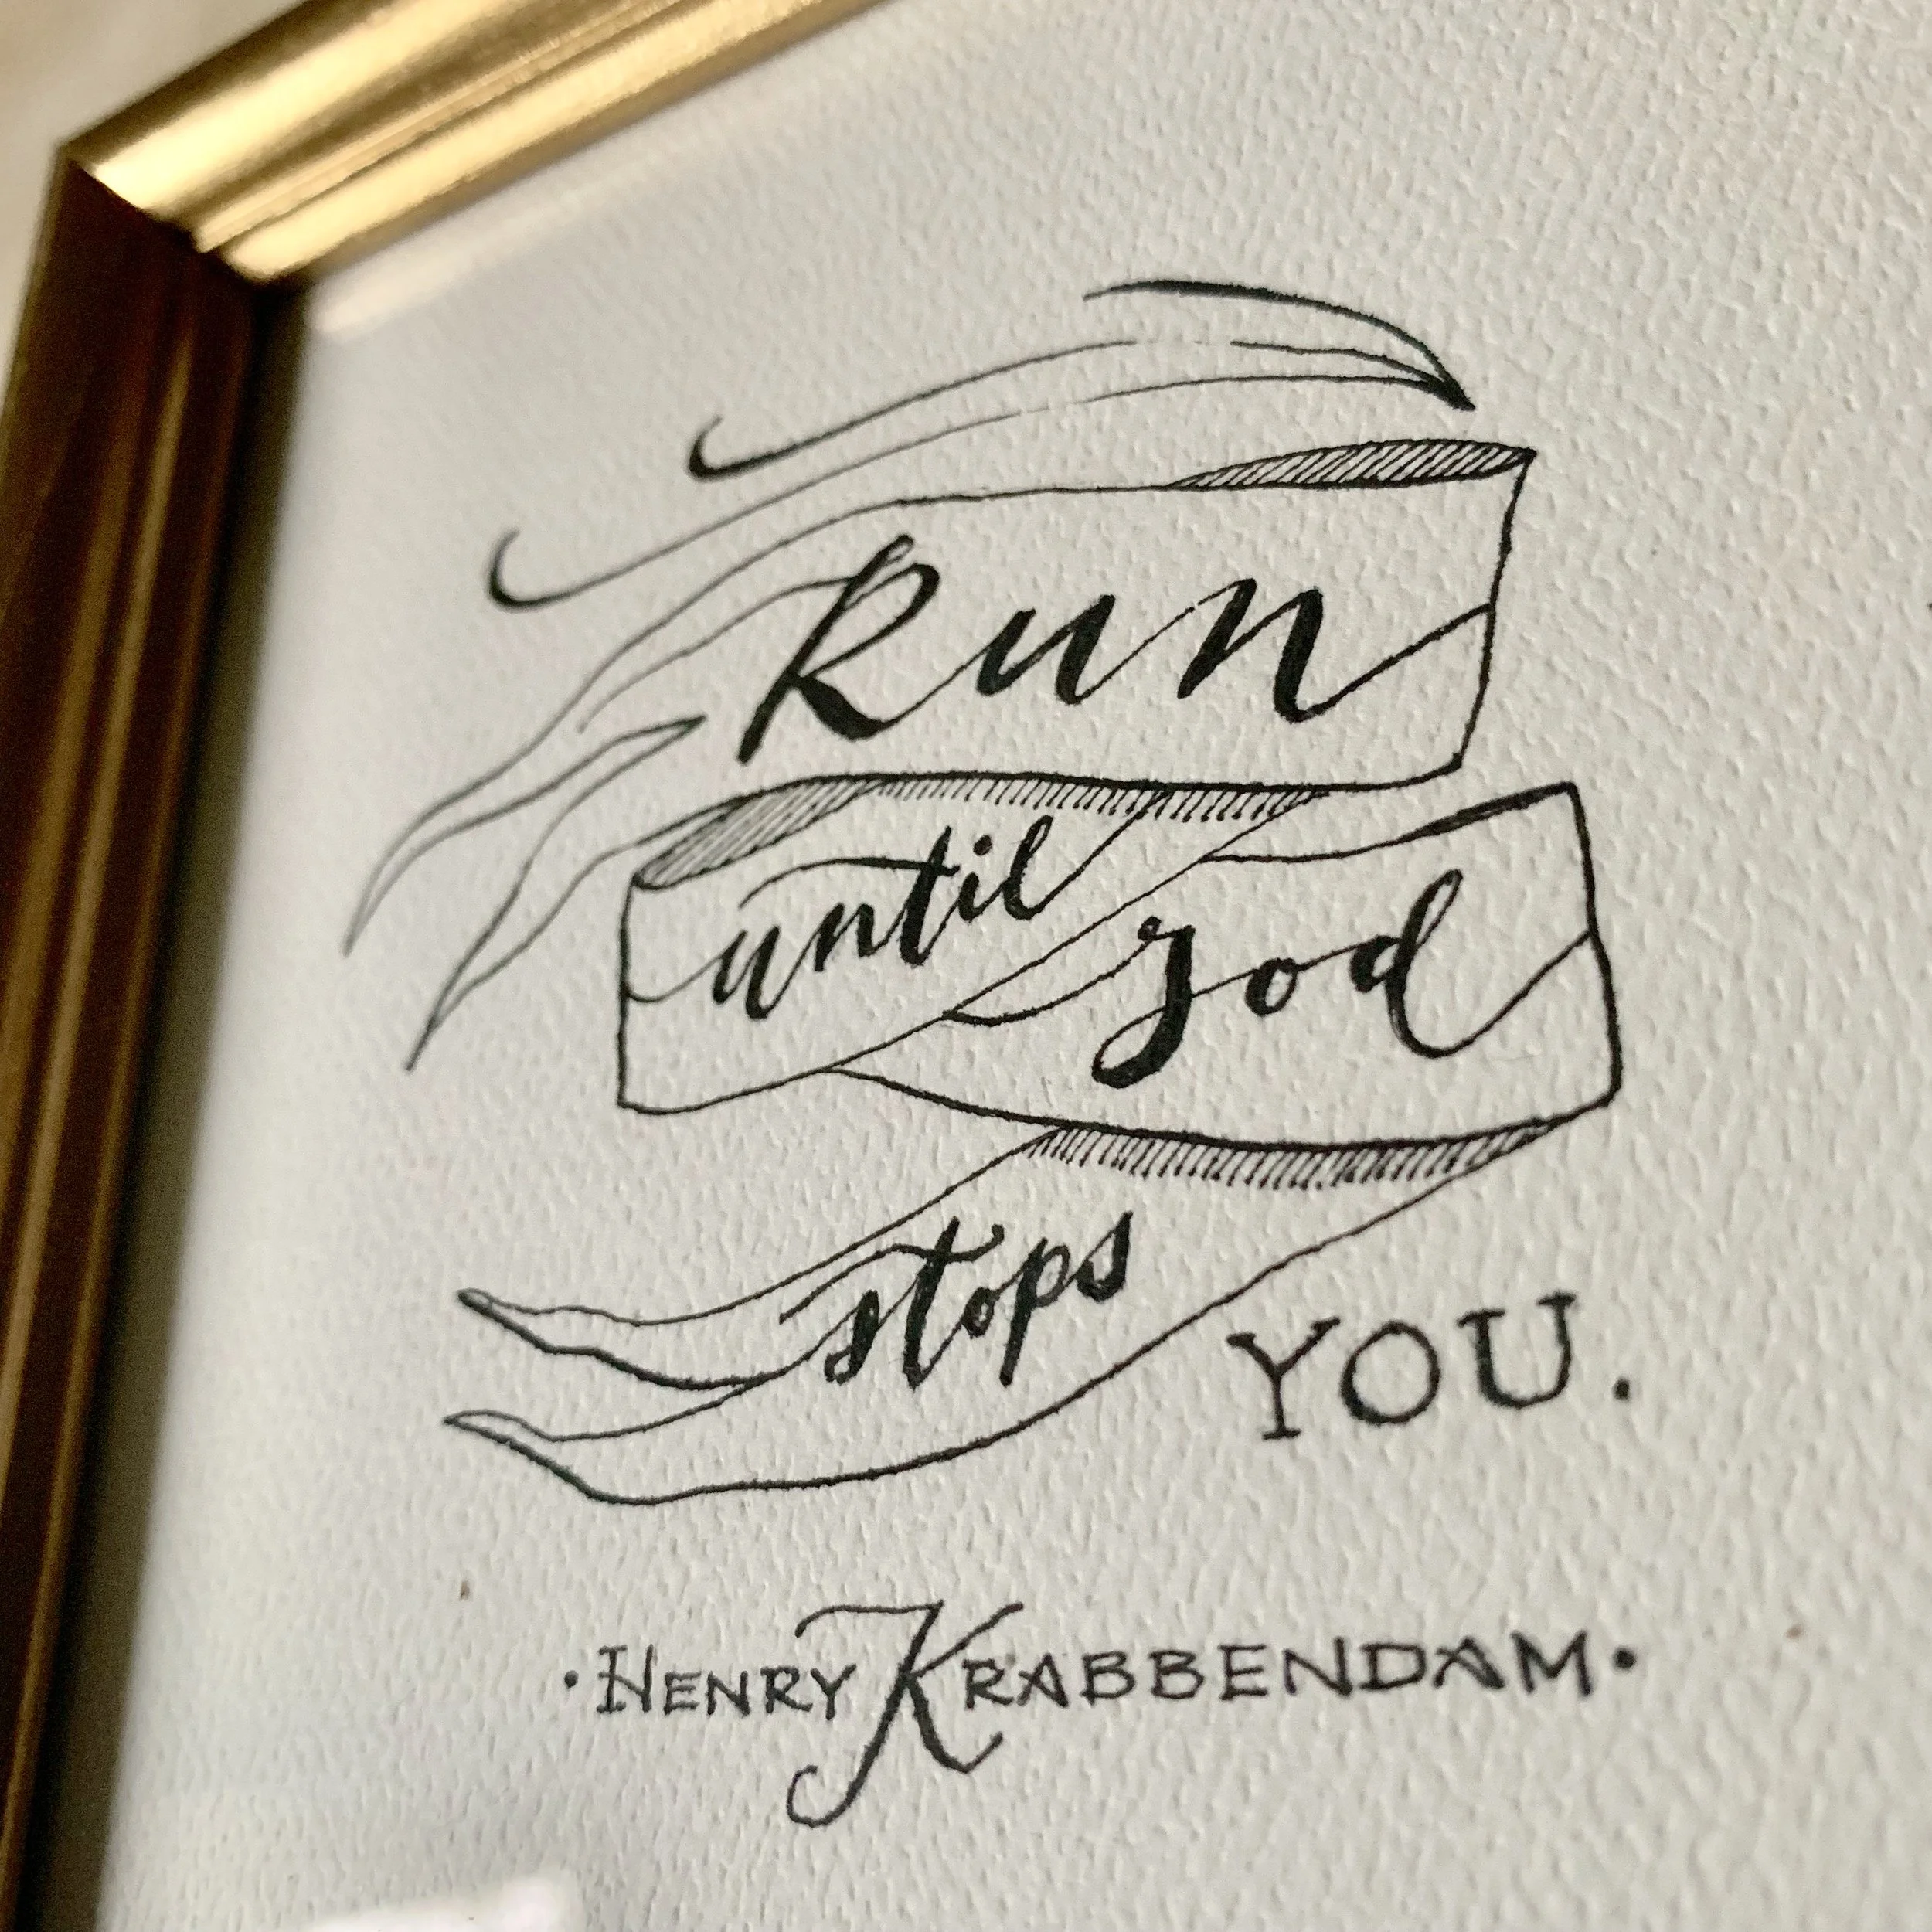 Run
until god
stops
YOU.
· HENRY KRABBENDAM ·